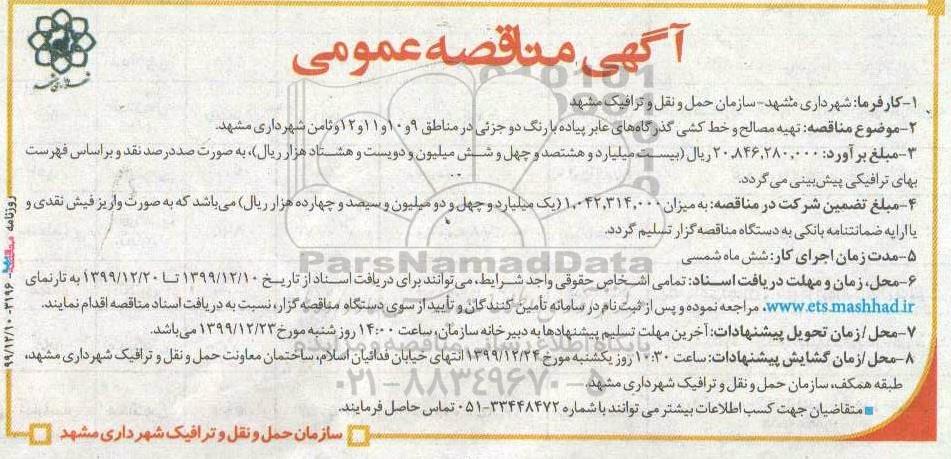 آگهی مناقصه عمومی
۱-کارفرما: شهرداری مشهد-سازمان حمل و نقل و ترافیک مشهد
۲-موضوع مناقصه: تهیه مصالح و خط کشی گذرگاه‌های عابر پیاده با رنگ دو جزئی در مناطق ۹و۱۰و۱۱و۱۲و ثامن شهرداری مشهد.
۳-مبلغ برآورد: ۲۰,۸۴۶,۲۸۰,۰۰۰ ریال (بیست میلیارد و هشتصد و چهل و شش میلیون و دویست و هشتاد هزار ریال)، به صورت صددرصد نقد و براساس فهرست
بهای ترافیکی پیش‌بینی می‌گردد.
۴-مبلغ تضمین شرکت در مناقصه: به میزان ۱,۰۴۲,۳۱۴,۰۰۰ (یک میلیارد و چهل و دو میلیون و سیصد و چهارده هزار ریال) می‌باشد که به صورت واریز فیش نقدی و
یا ارایه ضمانتنامه بانکی به دستگاه مناقصه‌گزار تسلیم گردد.
۵-مدت زمان اجرای کار: شش ماه شمسی
۶-محل، زمان و مهلت دریافت اسناد: تمامی اشخاص حقوقی واجد شرایط، می‌توانند برای دریافت اسناد از تاریخ ۱۳۹۹/۱۲/۱۰ تا ۱۳۹۹/۱۲/۲۰ به تارنمای
www.ets.mashhad.ir، مراجعه نموده و پس از ثبت نام در سامانه تأمین کنندگان و تأیید از سوی دستگاه مناقصه‌گزار، نسبت به دریافت اسناد مناقصه اقدام نمایند.
۷-محل/زمان تحویل پیشنهادات: آخرین مهلت تسلیم پیشنهادها به دبیرخانه سازمان، ساعت ۱۴:۰۰ روز شنبه مورخ ۱۳۹۹/۱۲/۲۳ می‌باشد.
۸-محل/زمان گشایش پیشنهادات: ساعت ۱۰:۳۰ روز یکشنبه مورخ ۱۳۹۹/۱۲/۲۴ انتهای خیابان فدائیان اسلام، ساختمان معاونت حمل و نقل و ترافیک شهرداری مشهد،
طبقه همکف، سازمان حمل و نقل و ترافیک شهرداری مشهد.
■ متقاضیان جهت کسب اطلاعات بیشتر می توانند با شماره ۳۳۴۴۸۴۷۲-۰۵۱ تماس حاصل فرمایند.
سازمان حمل و نقل و ترافیک شهرداری مشهد
روزنامه مناقصه - ۳۱۹۶ - ۹۹/۱۲/۱۰
ParsNamadData
پایگاه اطلاع رسانی مناقصه و مزایده
۰۲۱-۸۸۳۴۹۶۷۰-۵